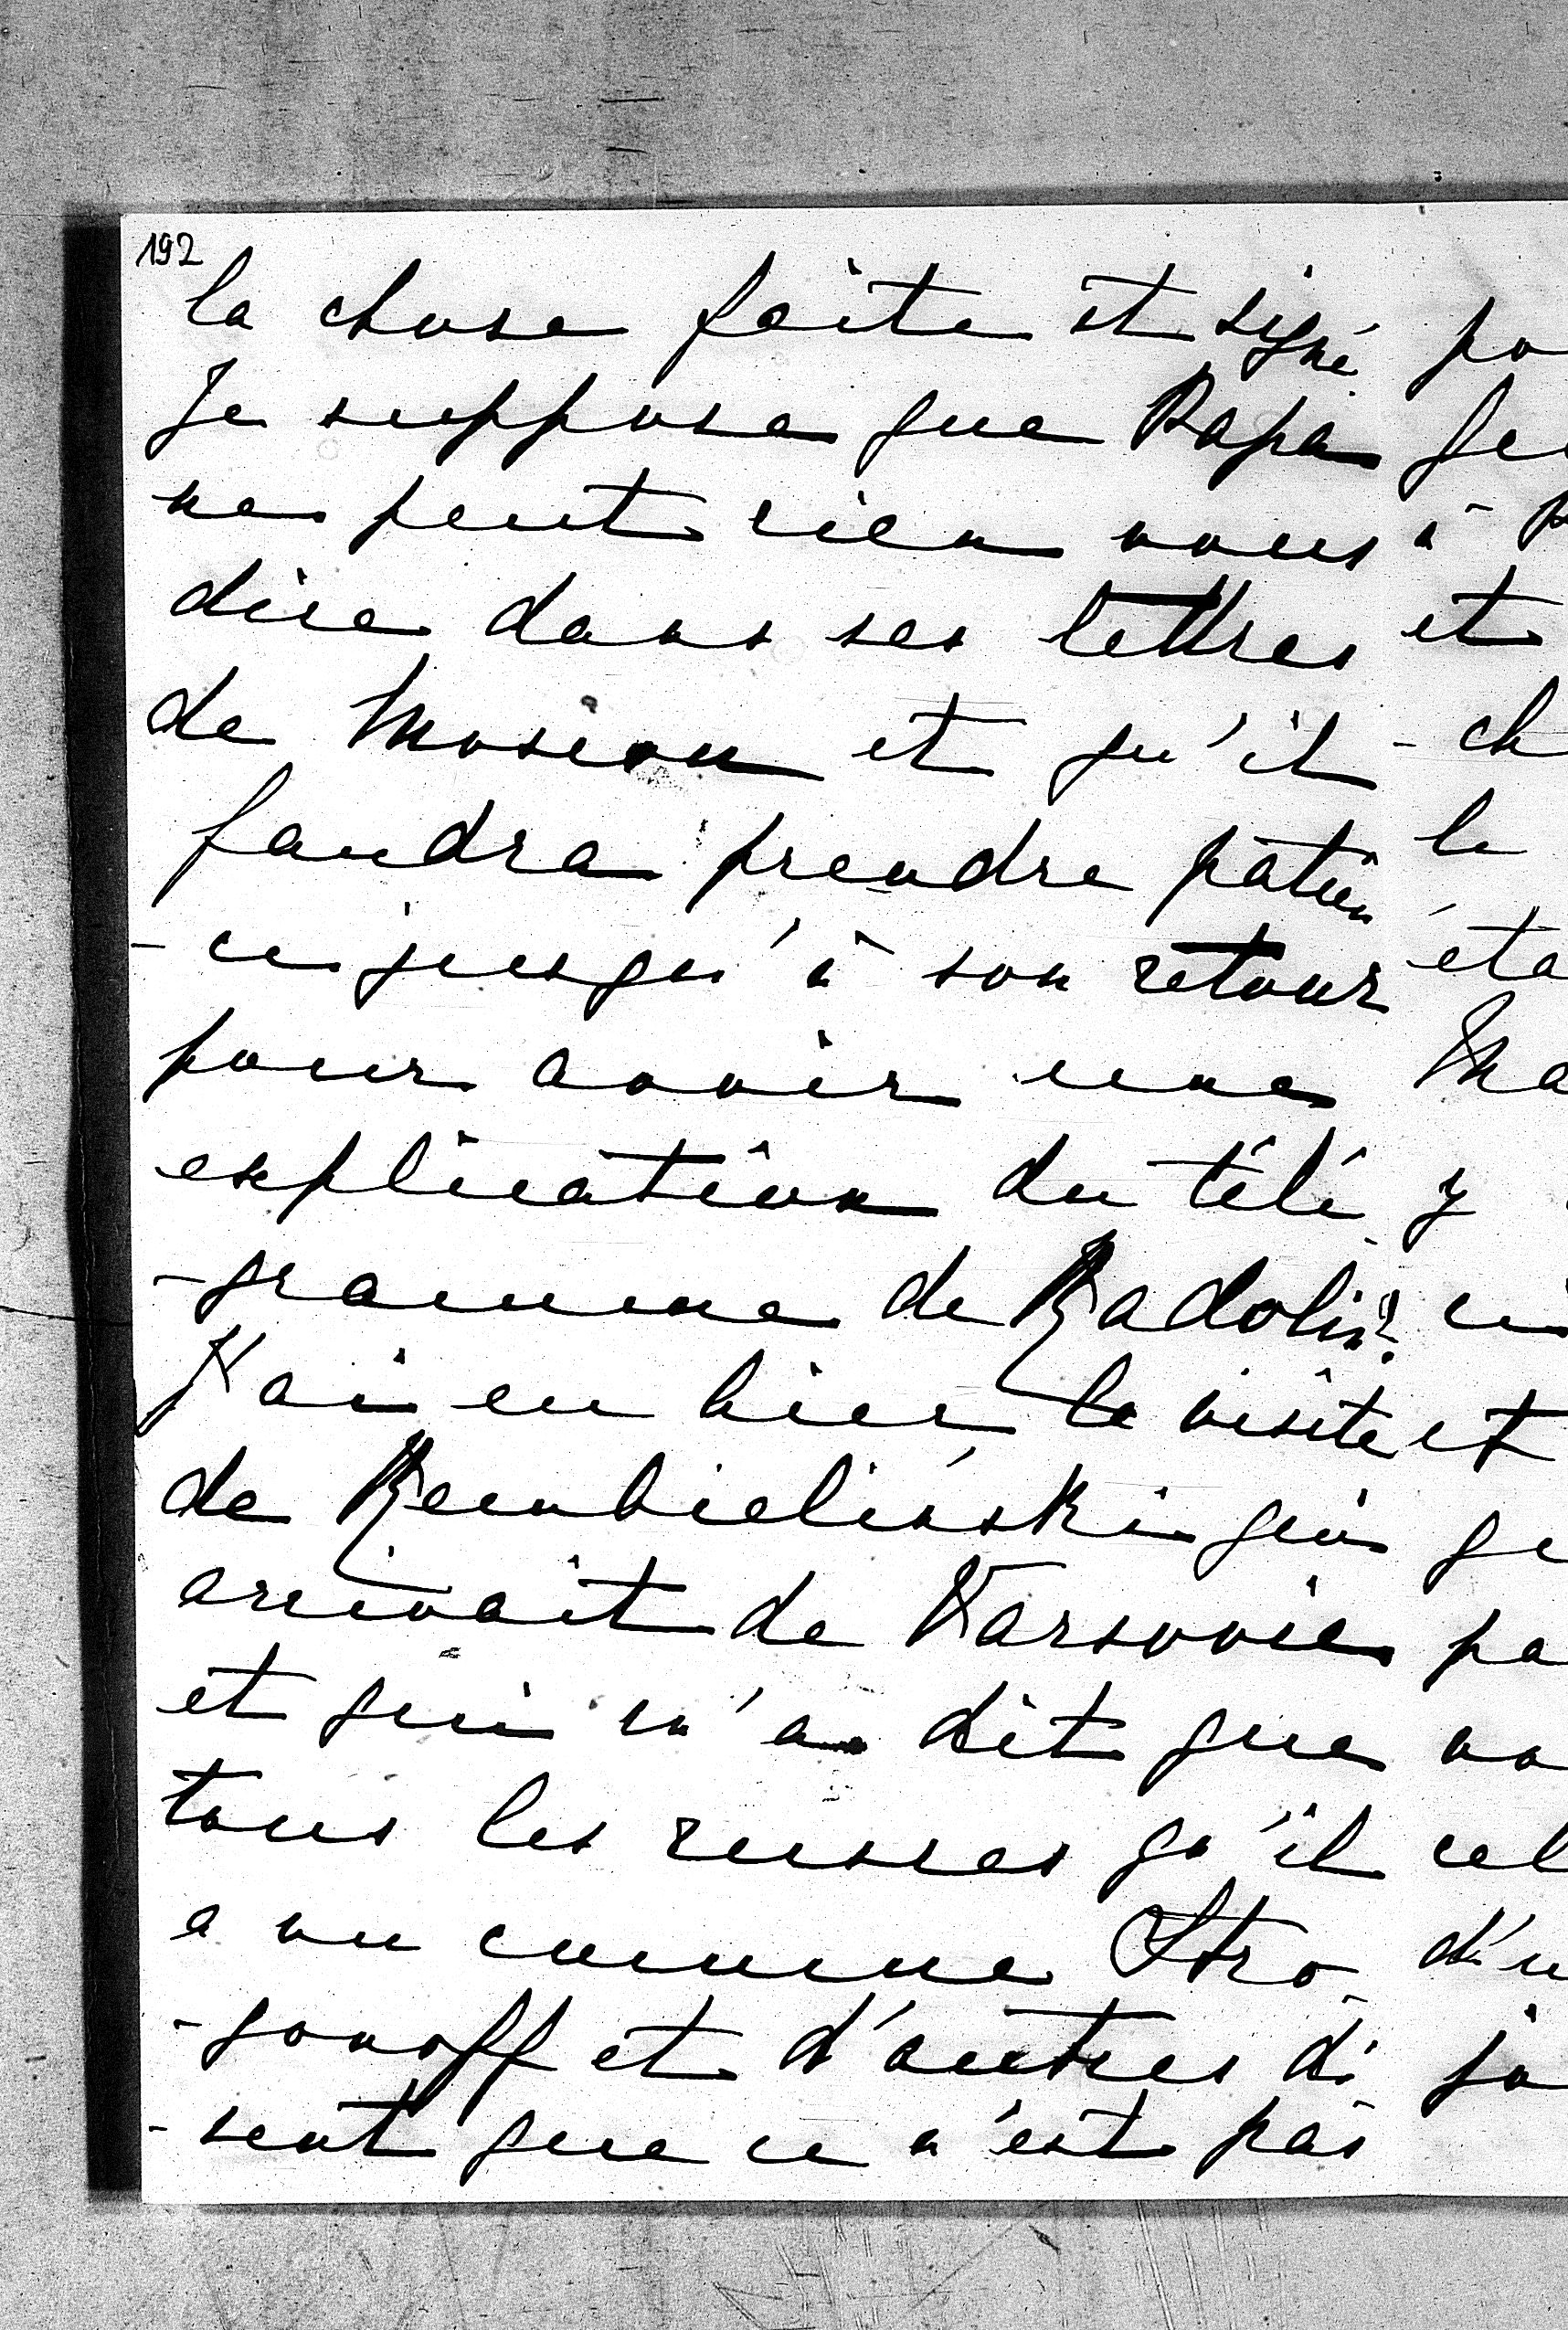 192
la chose faite et signé
Je suppose que Papa
ne peut rien nous
dire dans ses lettres
de Moscou et qu'il
faudra prendre patien
-ce jusqu'à son retour
pour avoir une
explication du télé
-gramme de Radolin?
J'ai eu hier la visite
de Rembielinski qui
arrivait de Varsovie
et qui m'a dit que
tous les russes qu'il
a vu comme Stro
-gonoff et d'autres di
-sent que ce n'est pas
po
et
ch
le
éta
Ma
y
et
pa